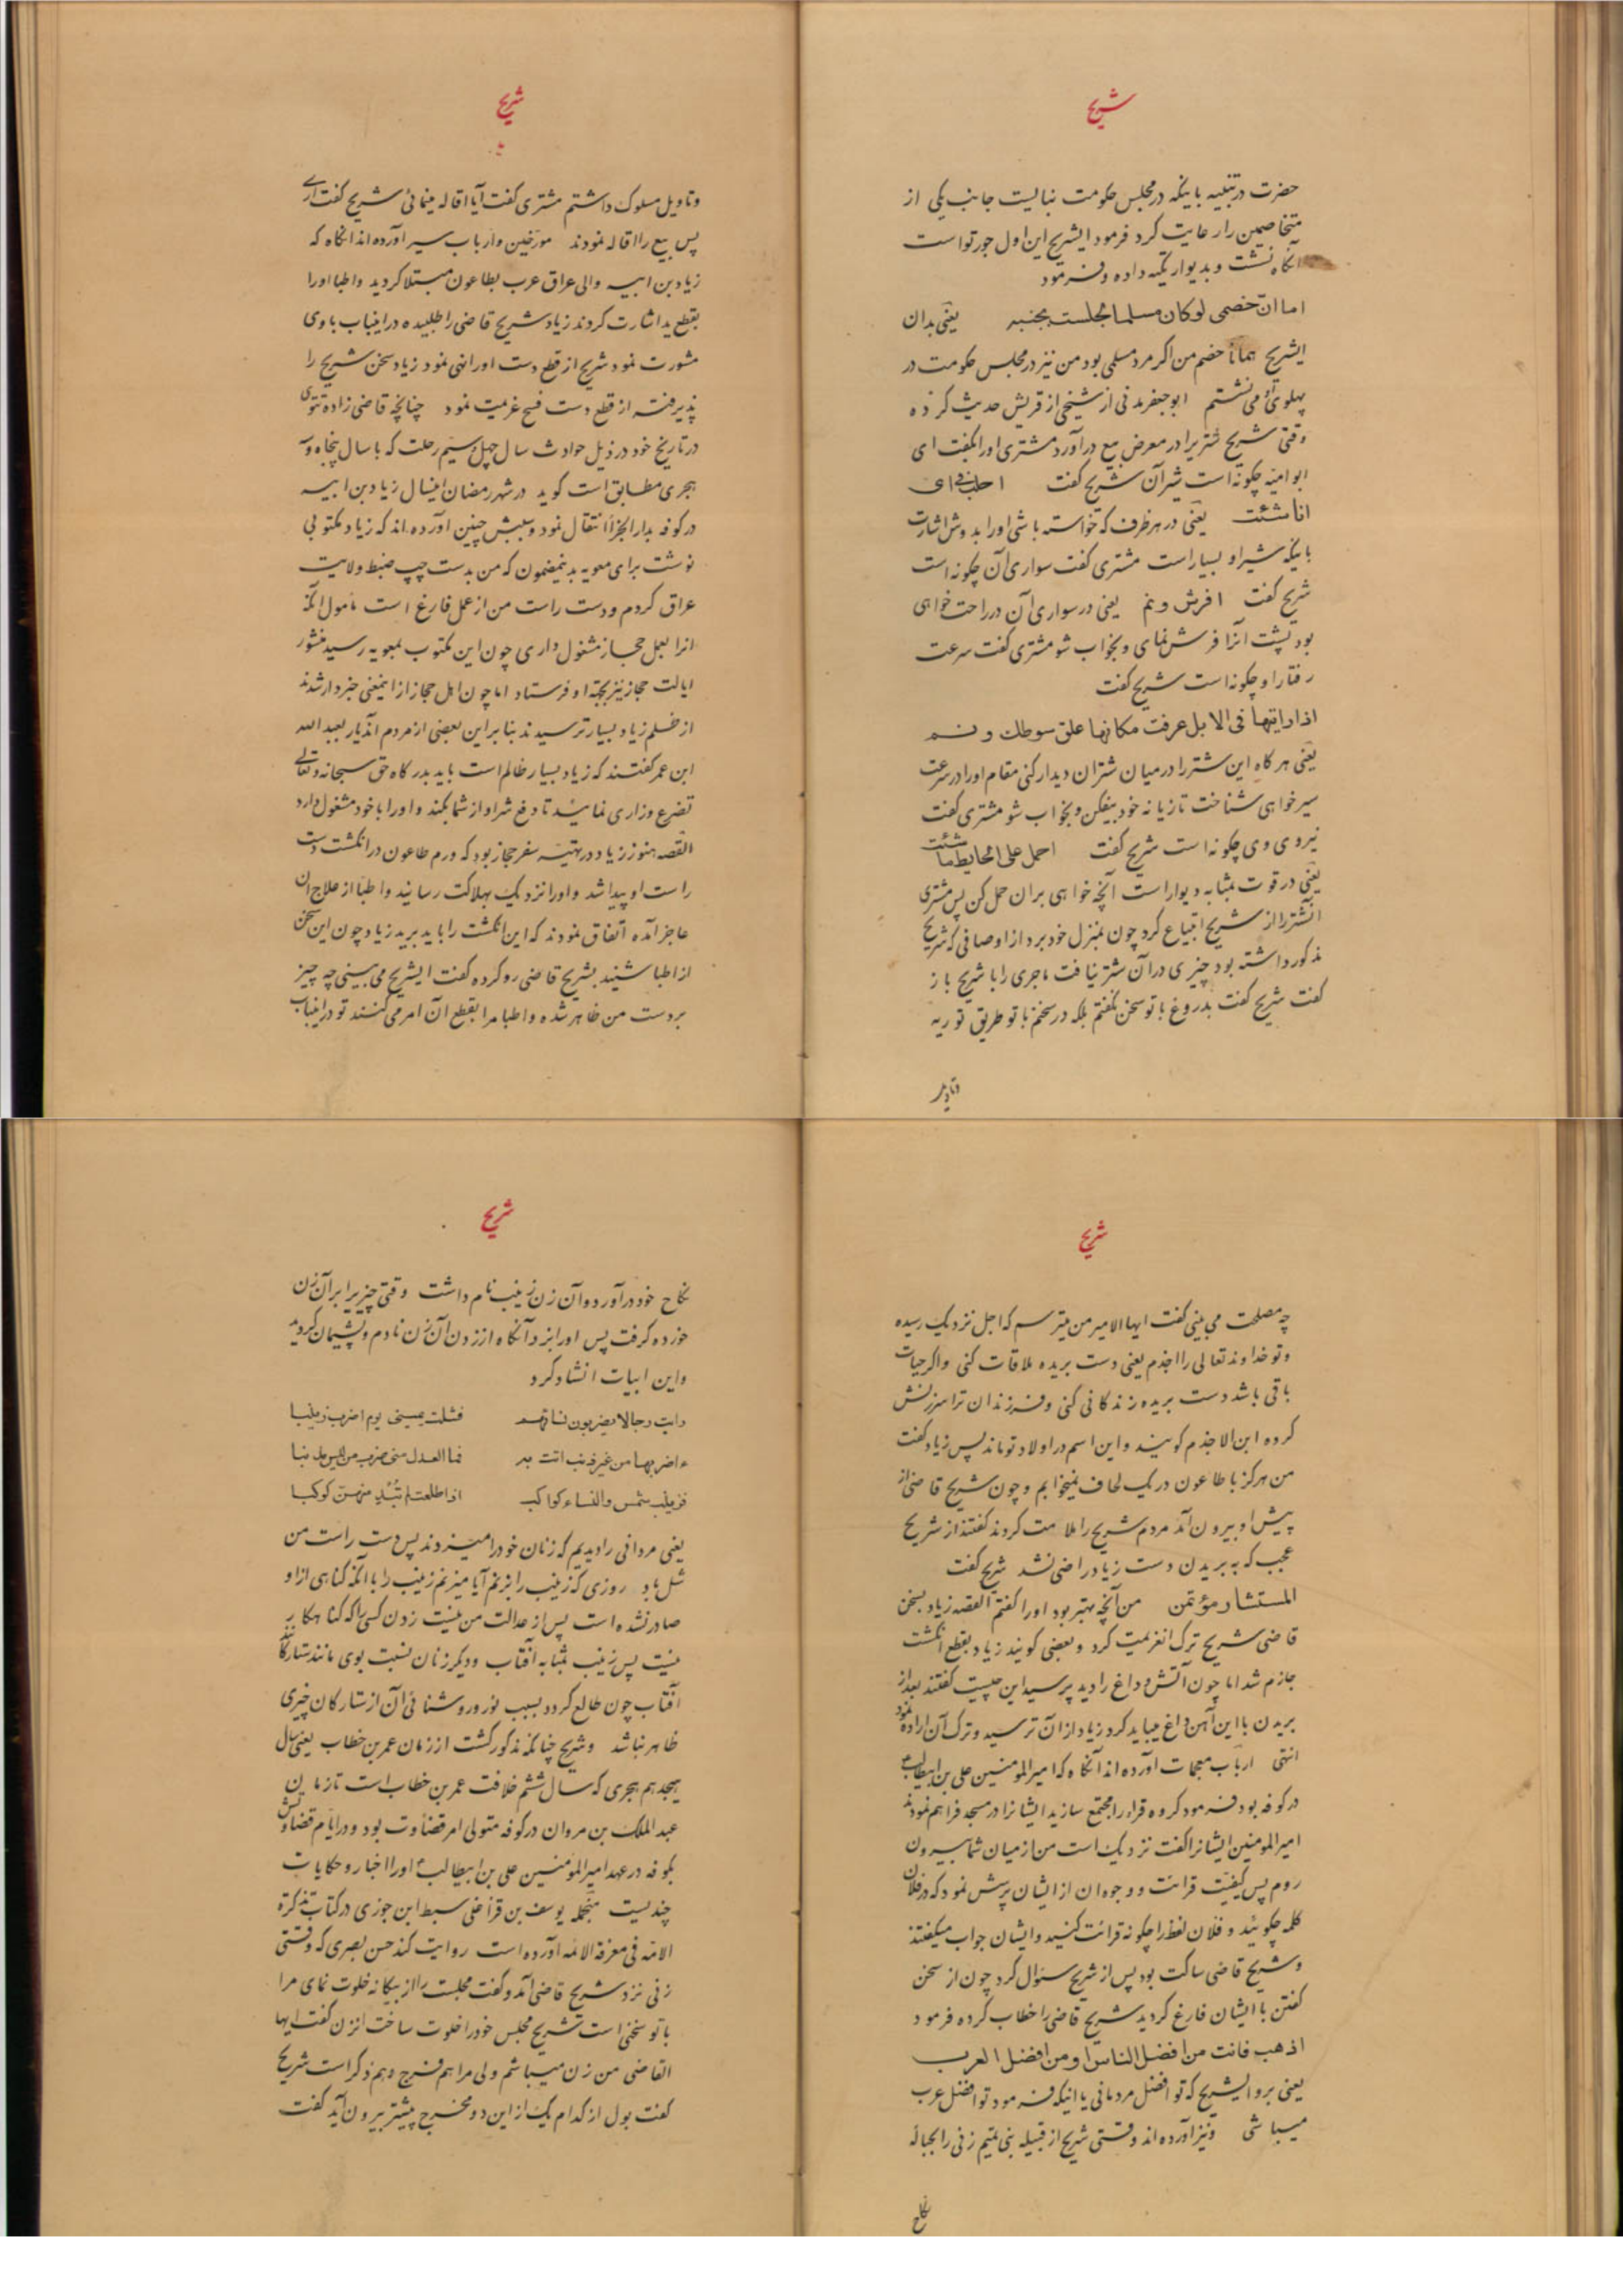 شریح
حضرت در تنبیه باینکه در مجلس حکومت نبالیست جانب یکی از
متخاصمین را رعایت کرد فرمود ایشریح این اول جور تو است
آنگاه نشست و بدیوار تکیه داده و فرمود
اما ان خصمی لو کان مسلما لجلست بجنبه یعنی بدان
ایشریح همانا خصم من اگر مرد مسلمی بود من نیز در مجلس حکومت در
پهلوی او می نشستم ابو جعفر مدنی از شیخی از قریش حدیث کرده
وقتی شریح شتریرا در معرض بیع درآورد مشتری او را بگفت ای
ابو امیه چگونه است شیر آن شریح گفت احلب فی ای
انا شئت یعنی در هر ظرف که خواسته باشی او را بدوش اشارت
باینکه شیر او بسیار است مشتری گفت سواری آن چگونه است
شریح گفت افرش و نم یعنی در سواری آن در راحت خواهی
بود پشت آنرا فرش نمای و بخواب شو مشتری گفت سرعت
رفتار او چگونه است شریح گفت
اذا رایتها فی الابل عرفت مکانها علق سوطک و نم
یعنی هر گاه این شتر را در میان شتران دیدار کنی مقام او را در سرعت
سیر خواهی شناخت تازیانه خود بیفکن و بخواب شو مشتری گفت
نیروی وی چگونه است شریح گفت احمل علی الحایط ما شئت
یعنی در قوت بمثابه دیوار است آنچه خواهی بر ان حمل کن پس مشتری
آنشتر را از شریح ابتیاع کرد چون بمنزل خود برد از اوصافی که شریح
مذکور داشته بود چیزی در آن شتر نیافت ماجری را با شریح باز
گفت شریح گفت بدروغ با تو سخن نگفتم بلکه در سخنم با تو طریق توریه
وتاویل
شریح
وتاویل مسلوک داشتم مشتری گفت آیا اقاله مینمائی شریح گفت آری
پس بیع را اقاله نمودند مورخین و ارباب سیر آورده اند انگاه که
زیاد بن ابیه والی عراق عرب بطاعون مبتلا کردید و اطبا او را
بقطع ید اشارت کردند زیاد شریح قاضی را طلبیده در اینباب با وی
مشورت نمود شریح از قطع دست او را نهی نمود زیاد سخن شریح را
پذیرفته از قطع دست فسخ عزیمت نمود چنانچه قاضی زاده تتوی
در تاریخ خود در ذیل حوادث سال چهل و سیم رحلت که با سال پنجاه و سه
هجری مطابق است کوید در شهر رمضان اینسال زیاد بن ابیه
در کوفه بدار الجزا انتقال نمود و سببش چنین آورده اند که زیاد مکتوبی
نوشت برای معویه بدینمضمون که من بدست چپ ضبط ولایت
عراق کردم و دست راست من از عمل فارغ است مامول انکه
انرا بعمل حجاز مشغول داری چون این مکتوب بمعویه رسید منشور
ایالت حجاز نیز بجهة او فرستاد اما چون اهل حجاز از اینمعنی خبردار شدند
از ظلم زیاد بسیار ترسیدند بنابراین بعضی از مردم آندیار بعبد الله
ابن عمر گفتند که زیاد بسیار ظالم است باید بدرگاه حق سبحانه و تعالی
تضرع وزاری نمائید تا دفع شر او از شما بکند و او را با خود مشغول دارد
القصه هنوز زیاد در تهیّه سفر حجاز بود که ورم طاعون در انکشت دست
راست او پیدا شد و او را نزدیک بهلاکت رسانید و اطبا از علاج ان
عاجز آمده اتفاق نمودند که این انکشت را باید برید زیاد چون این سخن
از اطبا شنید بشریح قاضی رو کرده گفت ایشریح می بینی چه چیز
بر دست من ظاهر شده و اطبا مرا بقطع آن امر می کنند تو در اینباب
شریح
چه مصلحت می بینی گفت ایها الامیر من میترسم که اجل نزدیک رسیده
و تو خداوند تعالی را اجذم یعنی دست بریده ملاقات کنی و اگر حیات
باقی باشد دست بریده زندکانی کنی و فرزندان ترا سرزنش
کرده ابن الاجذم کویند و این اسم در اولاد تو ماند پس زیاد گفت
من هرگز با طاعون در یک لحاف نمیخوابم و چون شریح قاضی از
پیش او بیرون آمد مردم شریح را ملامت کردند گفتند از شریح
عجب که به بریدن دست زیاد راضی نشد شریح گفت
المستشار مؤتمن من آنچه بهتر بود او را گفتم القصه زیاد بسخن
قاضی شریح ترک انعزیمت کرد و بعضی کویند زیاد بقطع انکشت
جازم شد اما چون آتش و داغ را دید پرسید این چیست گفتند بعد از
بریدن با این آهن داغ میباید کرد زیاد از آن ترسید و ترک آن اراده نمود
انتهی ارباب معجمات آورده اند آنگاه که امیر المومنین علی بن ابیطالب ع
در کوفه بود فرمود کروه قراء را مجتمع سازید ایشانرا در مسجد فراهم نمودند
امیر المومنین ایشانرا گفت نزدیک است من از میان شما بیرون
روم پس کیفیت قرائت و وجوه ان از ایشان پرسش نمود که در فلان
کلمه چگوئید و فلان لفظ را چگونه قرائت کنید و ایشان جواب میگفتند
و شریح قاضی ساکت بود پس از شریح سئوال کرد چون از سخن
گفتن با ایشان فارغ گردید شریح قاضی را خطاب کرده فرمود
اذهب فانت من افضل الناس او من افضل العرب
یعنی برو ایشریح که تو افضل مردمانی یا اینکه فرمود تو افضل عرب
میباشی و نیز آورده اند وقتی شریح از قبیله بنی تمیم زنی را بحباله
نکاح
شریح
نکاح خود در آورد و آن زن زینب نام داشت وقتی چیزیرا بر آن زن
خورده گرفت پس او را بزد آنگاه از زدن آن زن نادم و پشیمان گردید
و این ابیات انشاد کرد
رایت رجالا یضربون نسائهم فشلت یمینی یوم اضرب زینبا
ءاضربها من غیر ذنب اتت به فما العدل منی ضرب من لیس مذنبا
فزینب شمس والنساء کواکب اذا طلعت لم تبد منهن کوکبا
یعنی مردانی را دیدم که زنان خود را میزدند پس دست راست من
شل باد روزی که زینب را بزنم آیا میزنم زینب را با آنکه کناهی از او
صادر نشده است پس از عدالت من نیست زدن کسی را که کناهکار
نیست پس زینب بمثابه آفتاب و دیگر زنان نسبت بوی مانند ستارگانند
آفتاب چون طالع گردد بسبب نور و روشنائی آن از ستارگان چیزی
ظاهر نباشد و شریح چنانکه مذکور گشت از زمان عمر بن خطاب یعنی سال
هیجدهم هجری که سال ششم خلافت عمر بن خطاب است تا زمان
عبد الملک بن مروان در کوفه متولی امر قضاوت بود و در ایام قضاوتش
بکوفه در عهد امیر المومنین علی بن ابیطالب ع او را اخبار و حکایات
چندیست منجمله یوسف بن قزاغلی سبط ابن جوزی در کتاب تذکرة
الامه فی معرفة الائمه آورده است روایت کند حسن بصری که وقتی
زنی نزد شریح قاضی آمد و گفت مجلست را از بیگانه خلوت نمای مرا
با تو سخنی است شریح مجلس خود را خلوت ساخت انزن گفت ایها
القاضی من زن میباشم ولی مرا هم فرج و هم ذکر است شریح
گفت بول از کدام یک از این دو مخرج پیشتر بیرون آید گفت